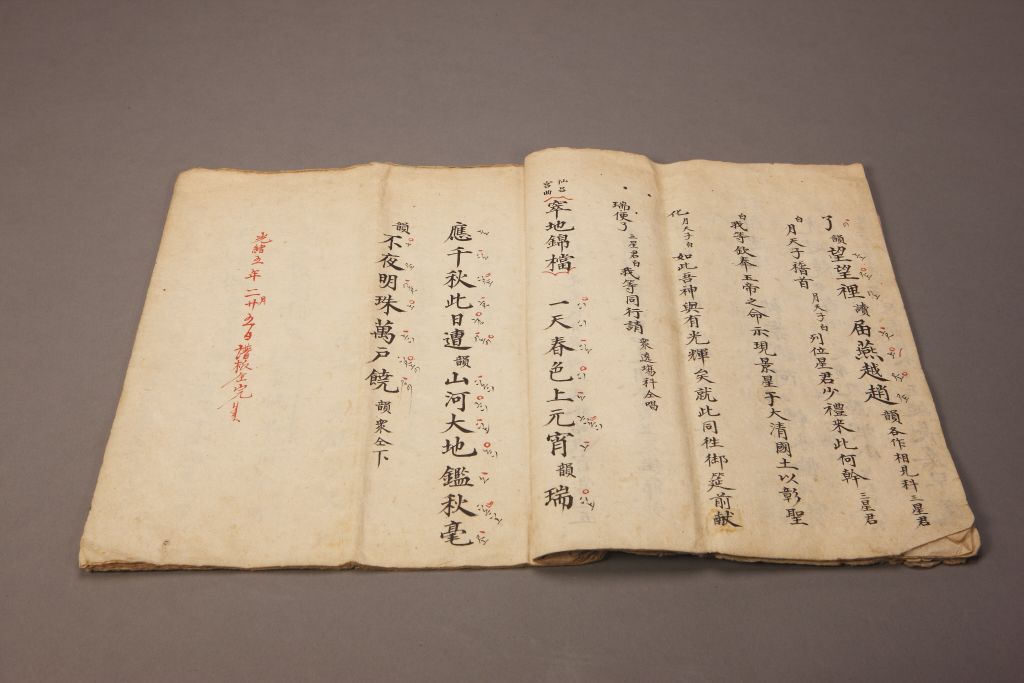 了韻望望裡讀屆燕越趙韻各作相見科三星君
白月天子稽首月天子白列位星君少禮來此何幹三星君
白我等欽奉玉帝之命示現景星于大清國土以彰聖
化月天子白如此吾神與有光輝矣就此同徃御筵前献
瑞便了三星君白我等同行請衆遶塲科仝唱
仙呂宮曲窣地錦檔 一天春色上元宵韻瑞
應千秋此日遭韻山河大地鑑秋毫
韻不夜明珠萬戶饒韻衆仝下
光緒五年二月廿五日譜板全完